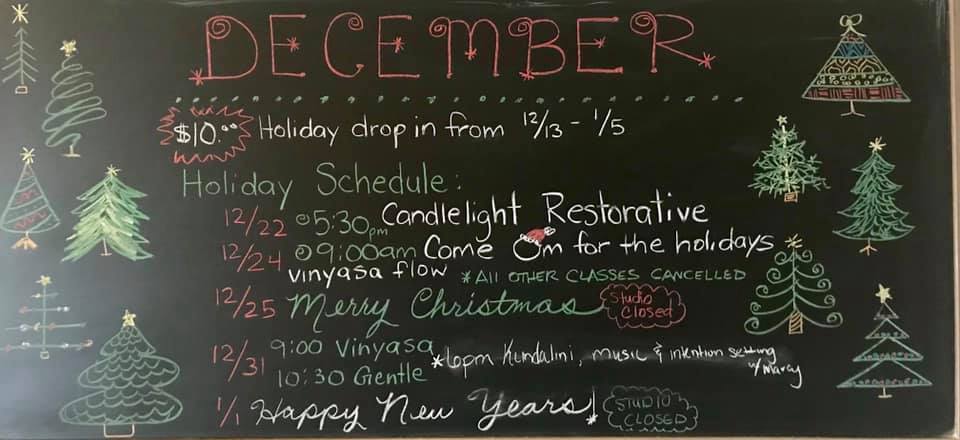 DECEMBER
$10.00 Holiday drop in from 12/13 - 1/5
Holiday Schedule:
12/22 @5:30pm Candlelight Restorative
12/24 @9:00am Come Om for the holidays
vinyasa flow *All OTHER CLASSES CANCELLED
12/25 Merry Christmas Studio Closed
12/31 9:00 Vinyasa *6pm Kundalini, music & intention setting w/ Marcy
10:30 Gentle
1/1 Happy New Years! STUDIO CLOSED